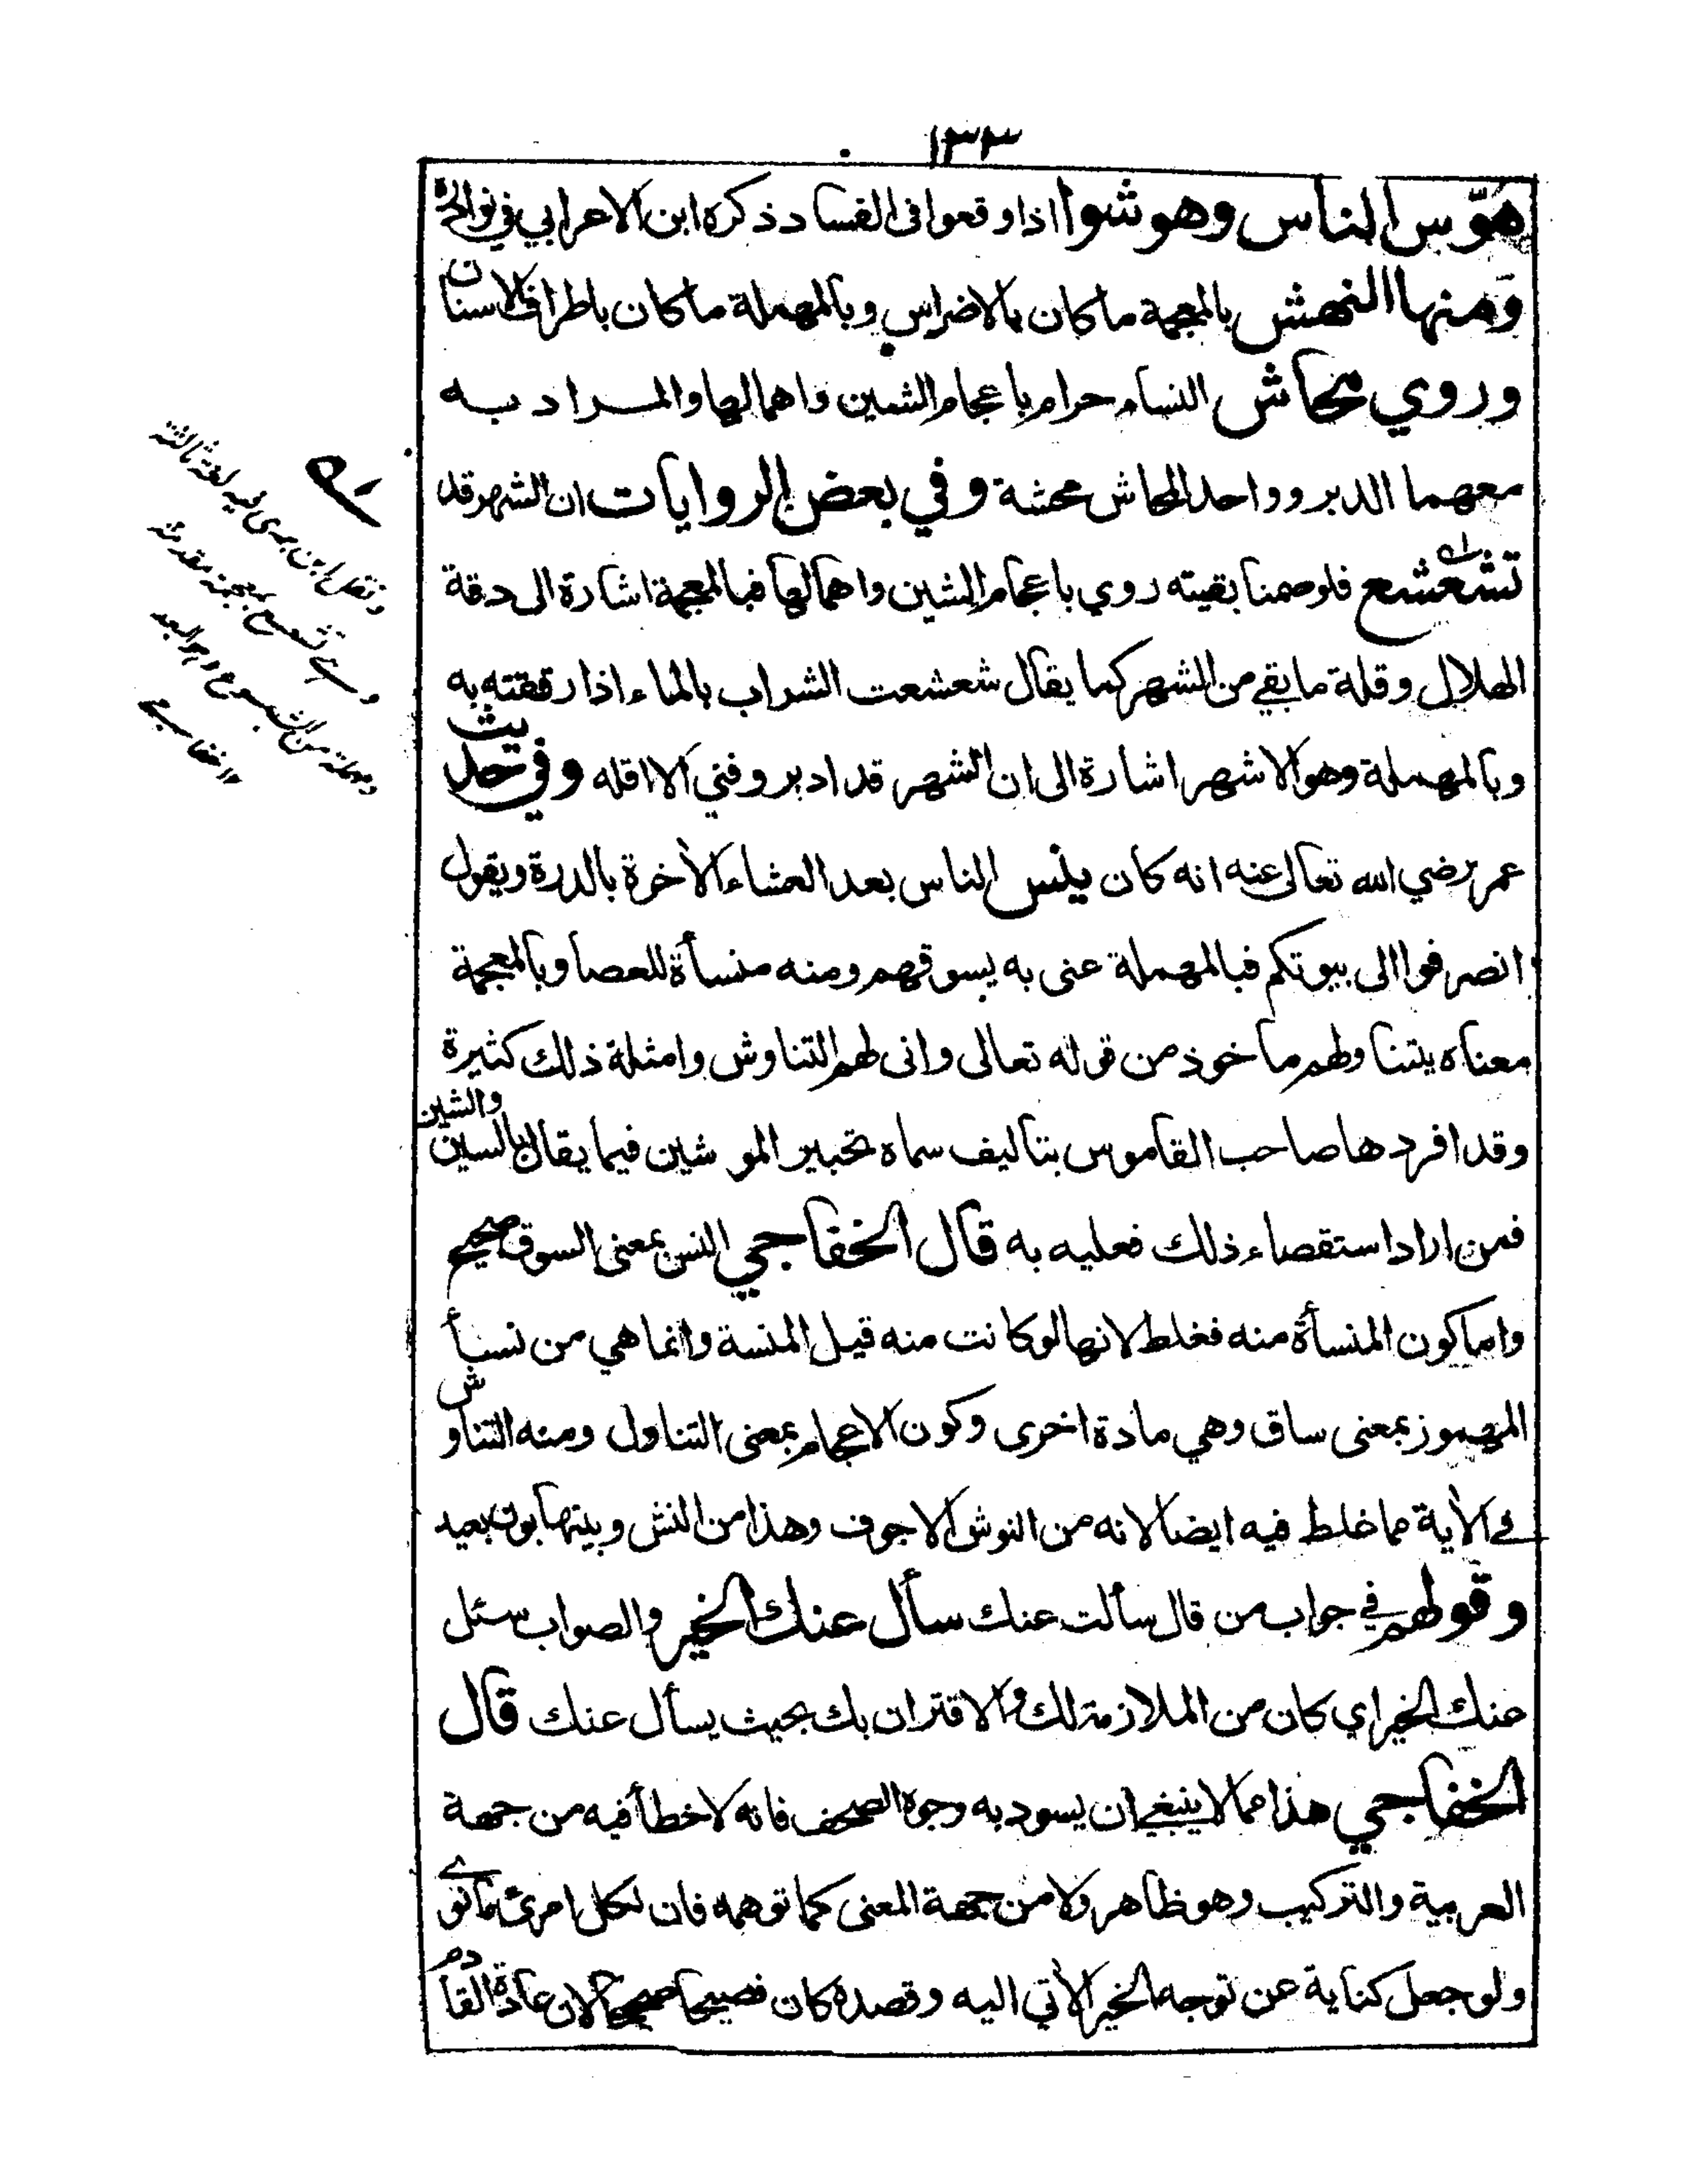 ١٣٣
هوّس الناس وهوشوا اذا وقعوا فى الفساد ذكره ابن الاعرابي في نوادره
ومنها النهش بالمعجمة ما كان بالاضراس وبالمهملة ما كان باطراف الاسنان
وروي محاش النساء حرام باعجام الشين واهمالها والمراد به
معهما الدبر وواحد المحاش محشة وفي بعض الروايات ان الشهر قد
تشعشع فلو صمنا بقيته روي باعجام الشين واهمالها فبالمعجمة اشارة الى دقة
الهلال وقلة ما بقي من الشهر كما يقال شعشعت الشراب بالماء اذا رققته به
وبالمهملة وهو الاشهر اشارة الى ان الشهر قد ادبر وفني الا اقله وفي حديث
عمر رضي الله تعالى عنه انه كان ينس الناس بعد العشاء الأخرة بالدرة ويقول
انصرفوا الى بيوتكم فبالمهملة عنى به يسوقهم ومنه منسأة للعصا وبالمعجمة
معناه يتناولهم ماخوذ من قوله تعالى وانى لهم التناوش وامثلة ذلك كثيرة
وقد افردها صاحب القاموس بتاليف سماه تحبير الموشين فيما يقال بالسين والشين
فمن اراد استقصاء ذلك فعليه به قال الخفاجي النس بمعنى السوق صحيح
واما كون المنسأة منه فغلط لانها لو كانت منه قيل المنسة وانما هي من نسأ
المهموز بمعنى ساق وهي مادة اخرى وكون الاعجام بمعنى التناول ومنه التناوش
في الأية مما خلط فيه ايضا لانه من النوش الاجوف وهذا من النش وبينهما بون بعيد
وقولهم في جواب من قال سألت عنك سأل عنك الخير والصواب سئل
عنك الخير اي كان من الملازمة لك والاقتران بك بحيث يسأل عنك قال
الخفاجي هذا مما لا ينبغي ان يسود به وجوه الصحف فانه لا خطأ فيه من جهة
العربية والتركيب وهو ظاهر ولا من جهة المعنى كما توهمه فان لكل امرئ ما نوى
ولو جعل كناية عن توجه الخير الأتي اليه وقصده كان فصيحا صحيحا لان عادة القادم
ونقل ابن بري فيه لغة ثالثة
وهي تشعسع بمعجمة مقدمة
ومهملة من الشسوع وهو البعد
خفاجي